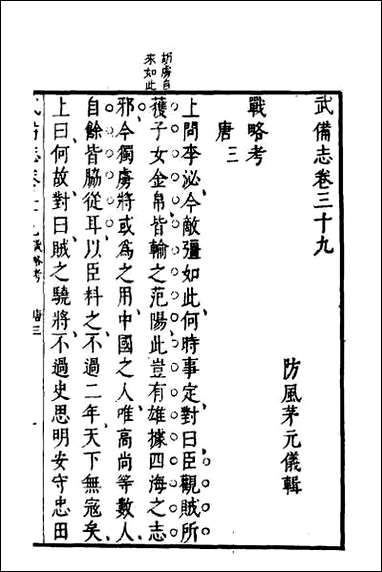 武備志卷三十九
防風茅元儀輯
戰略考
唐三
胡虜自
來如此
上問李泌今敵彊如此何時事定對曰臣觀賊所
獲子女金帛皆輸之范陽此豈有雄據四海之志
邪今獨虜將或為之用中國之人唯高尚等數人
自餘皆脇從耳以臣料之不過二年天下無寇矣
上曰何故對曰賊之驍將不過史思明安守忠田
武備志卷三十九 戰略考 唐三 一